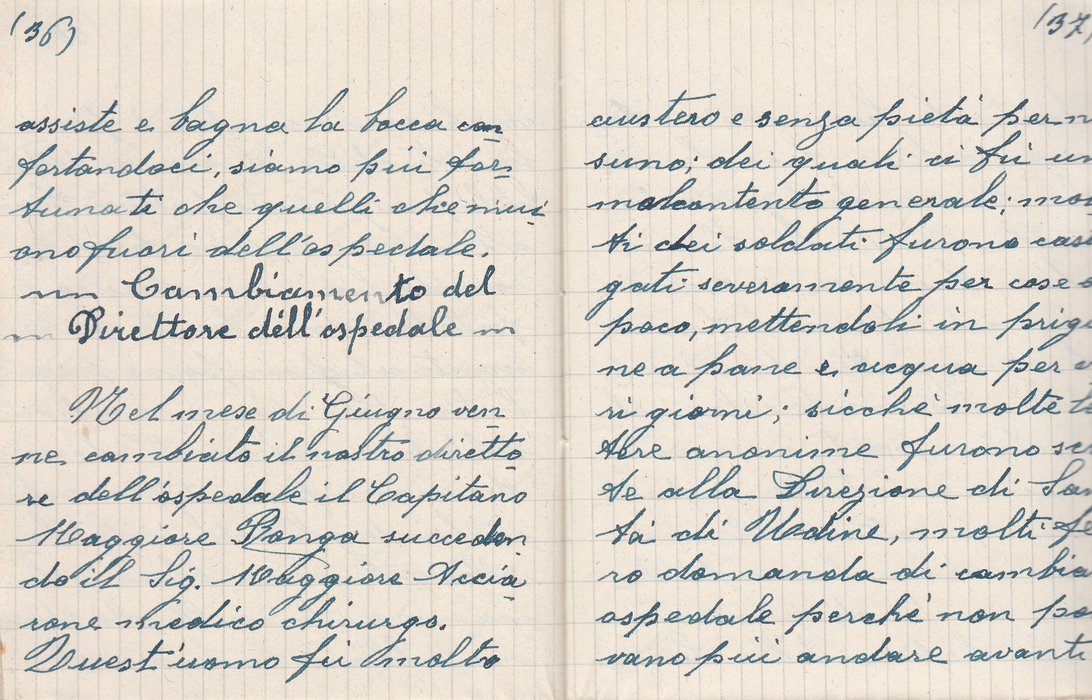 (36)
assiste e bagna la bocca con
fortandoci, siamo più for-
tunati che quelli che mui
ono fuori dell'ospedale.
Cambiamento del
Direttore dell'ospedale
Nel mese di Giugno ven
ne cambiato il nostro diretto
re dell'ospedale il Capitano
Maggiore Ponga succeden
do il Sig. Maggiore Accia
rone medico chirurgo.
Quest'uomo fù molto
(37)
austero e senza pietà per n
suno; dei quali ci fù un
malcontento generale; mol
ti dei soldati furono cas
gati severamente per cose
poco, mettendoli in prig
ne a pane e acqua per
ri giorni; sicchè molte
tere anonime furono
te alla Direzione di San
tà di Udine, molti
ro domanda di cambia
ospedale perchè non po
vano più andare avanti